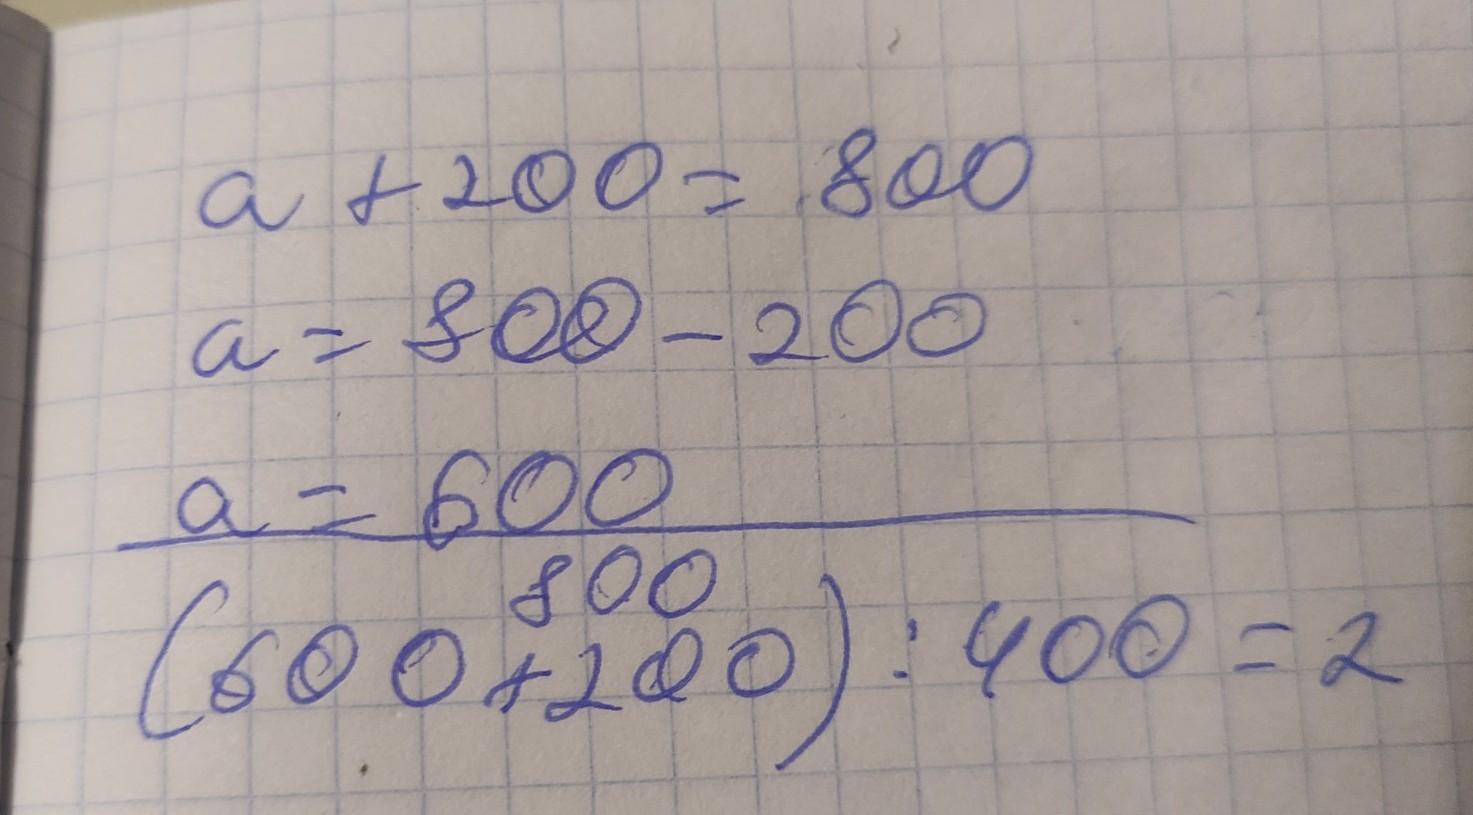 a + 200 = 800
a = 800 - 200
a = 600
800
(600+200) : 400 = 2